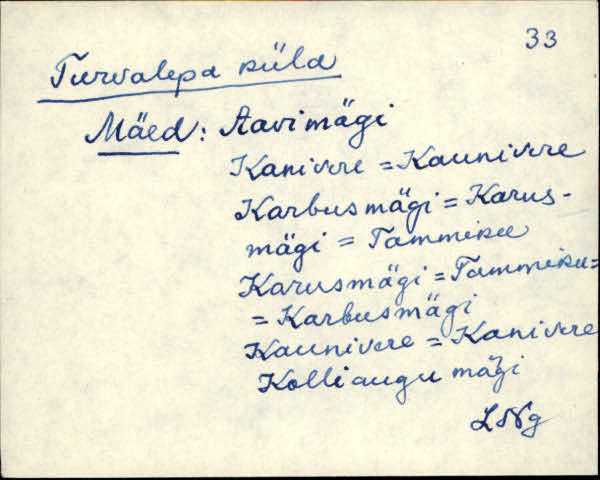 33
Turvalepa küla
Mäed: Aavimägi
Kanivere = Kaunivere
Karbusmägi = Karus-
mägi = Tammiku
Karusmägi = Tammiku =
= Karbusmägi
Kaunivere = Kanivere
Kolliaugu mägi
LNg